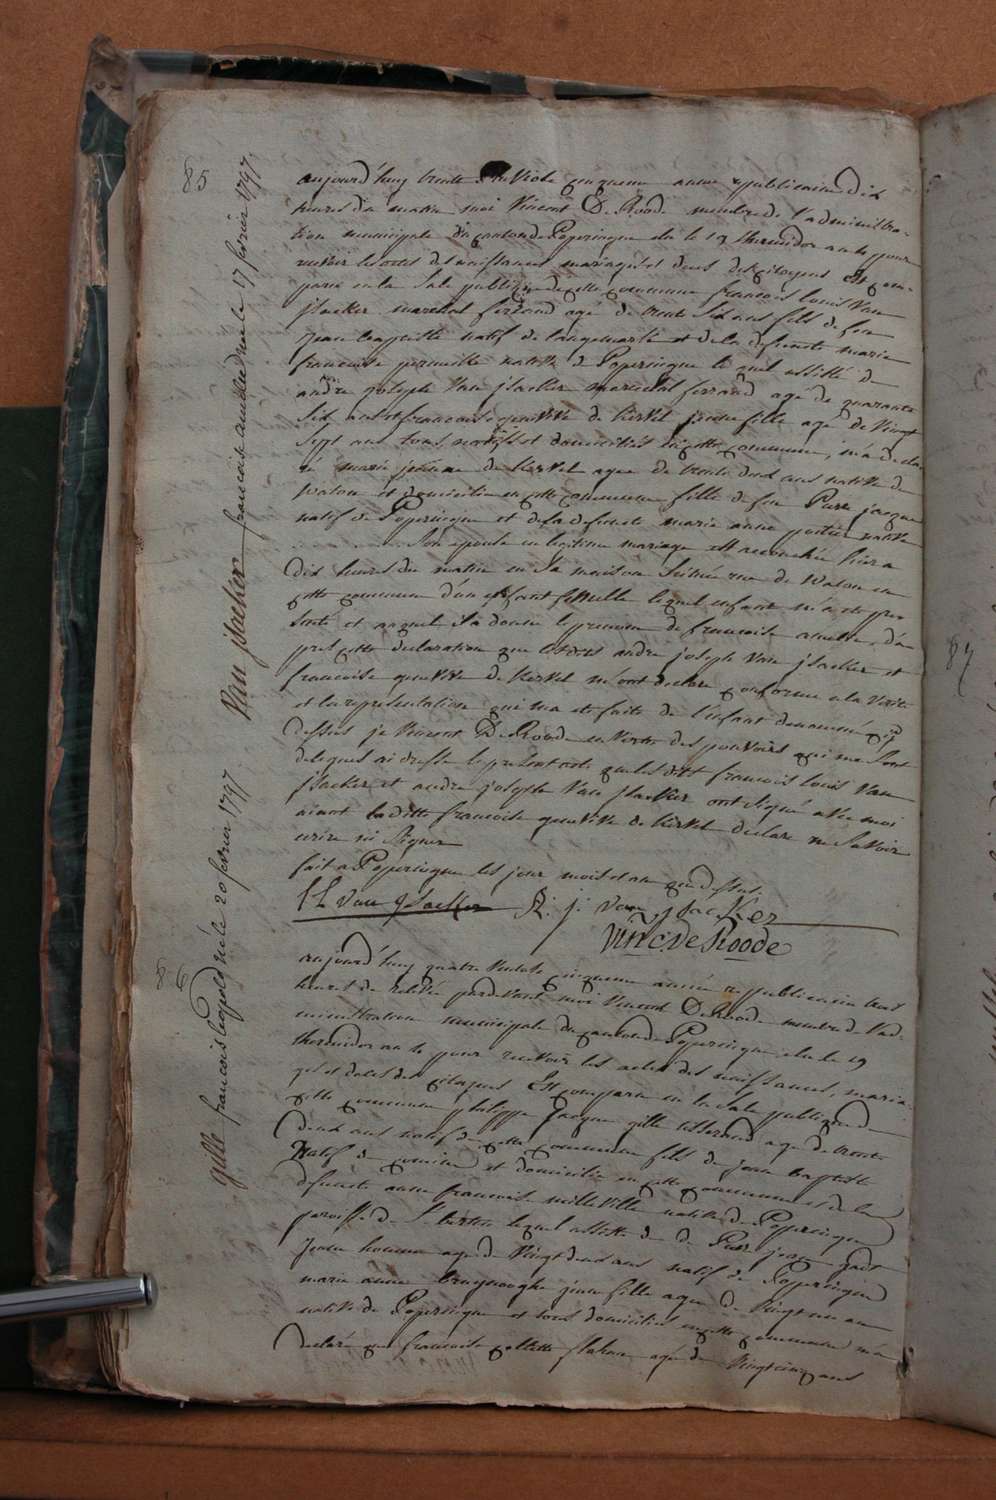 85
Van jsacker francoise amelie née le 17 fevrier 1797.
aujourd'huy trente pluviose cinquieme annee republicaine dix
heures du matin moi Vincent De Roode membre de l'administra-
tion municipale du canton de Poperingue elu le 19 thermidor an 4 pour
recevoir les actes de naissances mariages et deces des citoyens Est com-
paru en la Sale publique de cette commune francois Louis Van
jsacker marechal ferrand agé de trente Six ans fils de feu
jean baptiste natif de langemarck et de la defuncte marie
francoise natife de Poperingue le quel assisté de
andre joseph Van jsacker marechal ferrand agé de quarante
Six ans et francoise genevive de kerkel jeune fille agé de Vingt
Sept ans tous natifs et domiciliés en cette commune, m'a decla
ré marie jeanne de kerkel agee de trente deux ans native de
watou et domiciliee en cette commune fille de feu Pierre jacque
natif de Poperingue et de la defuncte marie anne portier native
Son epouse en legitime mariage est accouchée hier a
dix heures du matin en Sa maison Scituée rue de Watou en
cette commune d'un enfant femelle lequel enfant m'a eté pre
Senté et auquel il a donné le prenom de francoise amelie, d'a
pres cette declaration que les dits andre joseph Van jsacker et
francoise genevive de kerkel m'ont declaré conforme a la verité
et la representation qui m'a eté faite de l'enfant denommé cy
dessus je Vincent De Roode en vertu des pouvoirs qui me Sont
delegues ai dressé le present acte que les dits francois louis Van
jsacker et andre joseph Van jsacker ont Signé avec moi
aiant laditte francoise genevive de kerkel declaré ne Savoir
ecrire ni Signer
fait a Poperingue les jour mois et an que dessus.
f L van ysacker A: j: van ysacker
Vinc. De Roode
86
gille francois leopold né le 20 fevrier 1797
aujourd'huy quatre Ventose cinquieme année republicaine trois
heures de relevée pardevant moi Vincent De Roode membre de l'ad-
ministration municipale du canton de Poperingue elu le 19
thermidor an 4 pour recevoir les actes des naissances, maria-
ges et deces des citoyens Est comparu en la Sale publique de
cette commune philippe jacque gille tisserand agé de trente
deux ans natif de cette commune fils de jean baptiste
Natif de comine et domicilié en cette commune et de la
defuncte anne francoise milleville native de Poperingue
paroisse de St bertin lequel assisté de Pierre
jeune homme agé de Vingt deux ans natif de Poperingue
marie anne bruynooghe jeune fille agee de Vingt un an
native de Poperingue et tous domiciliés en cette commune m'a
declaré que francoise collette agé de Vingt cinq ans
87